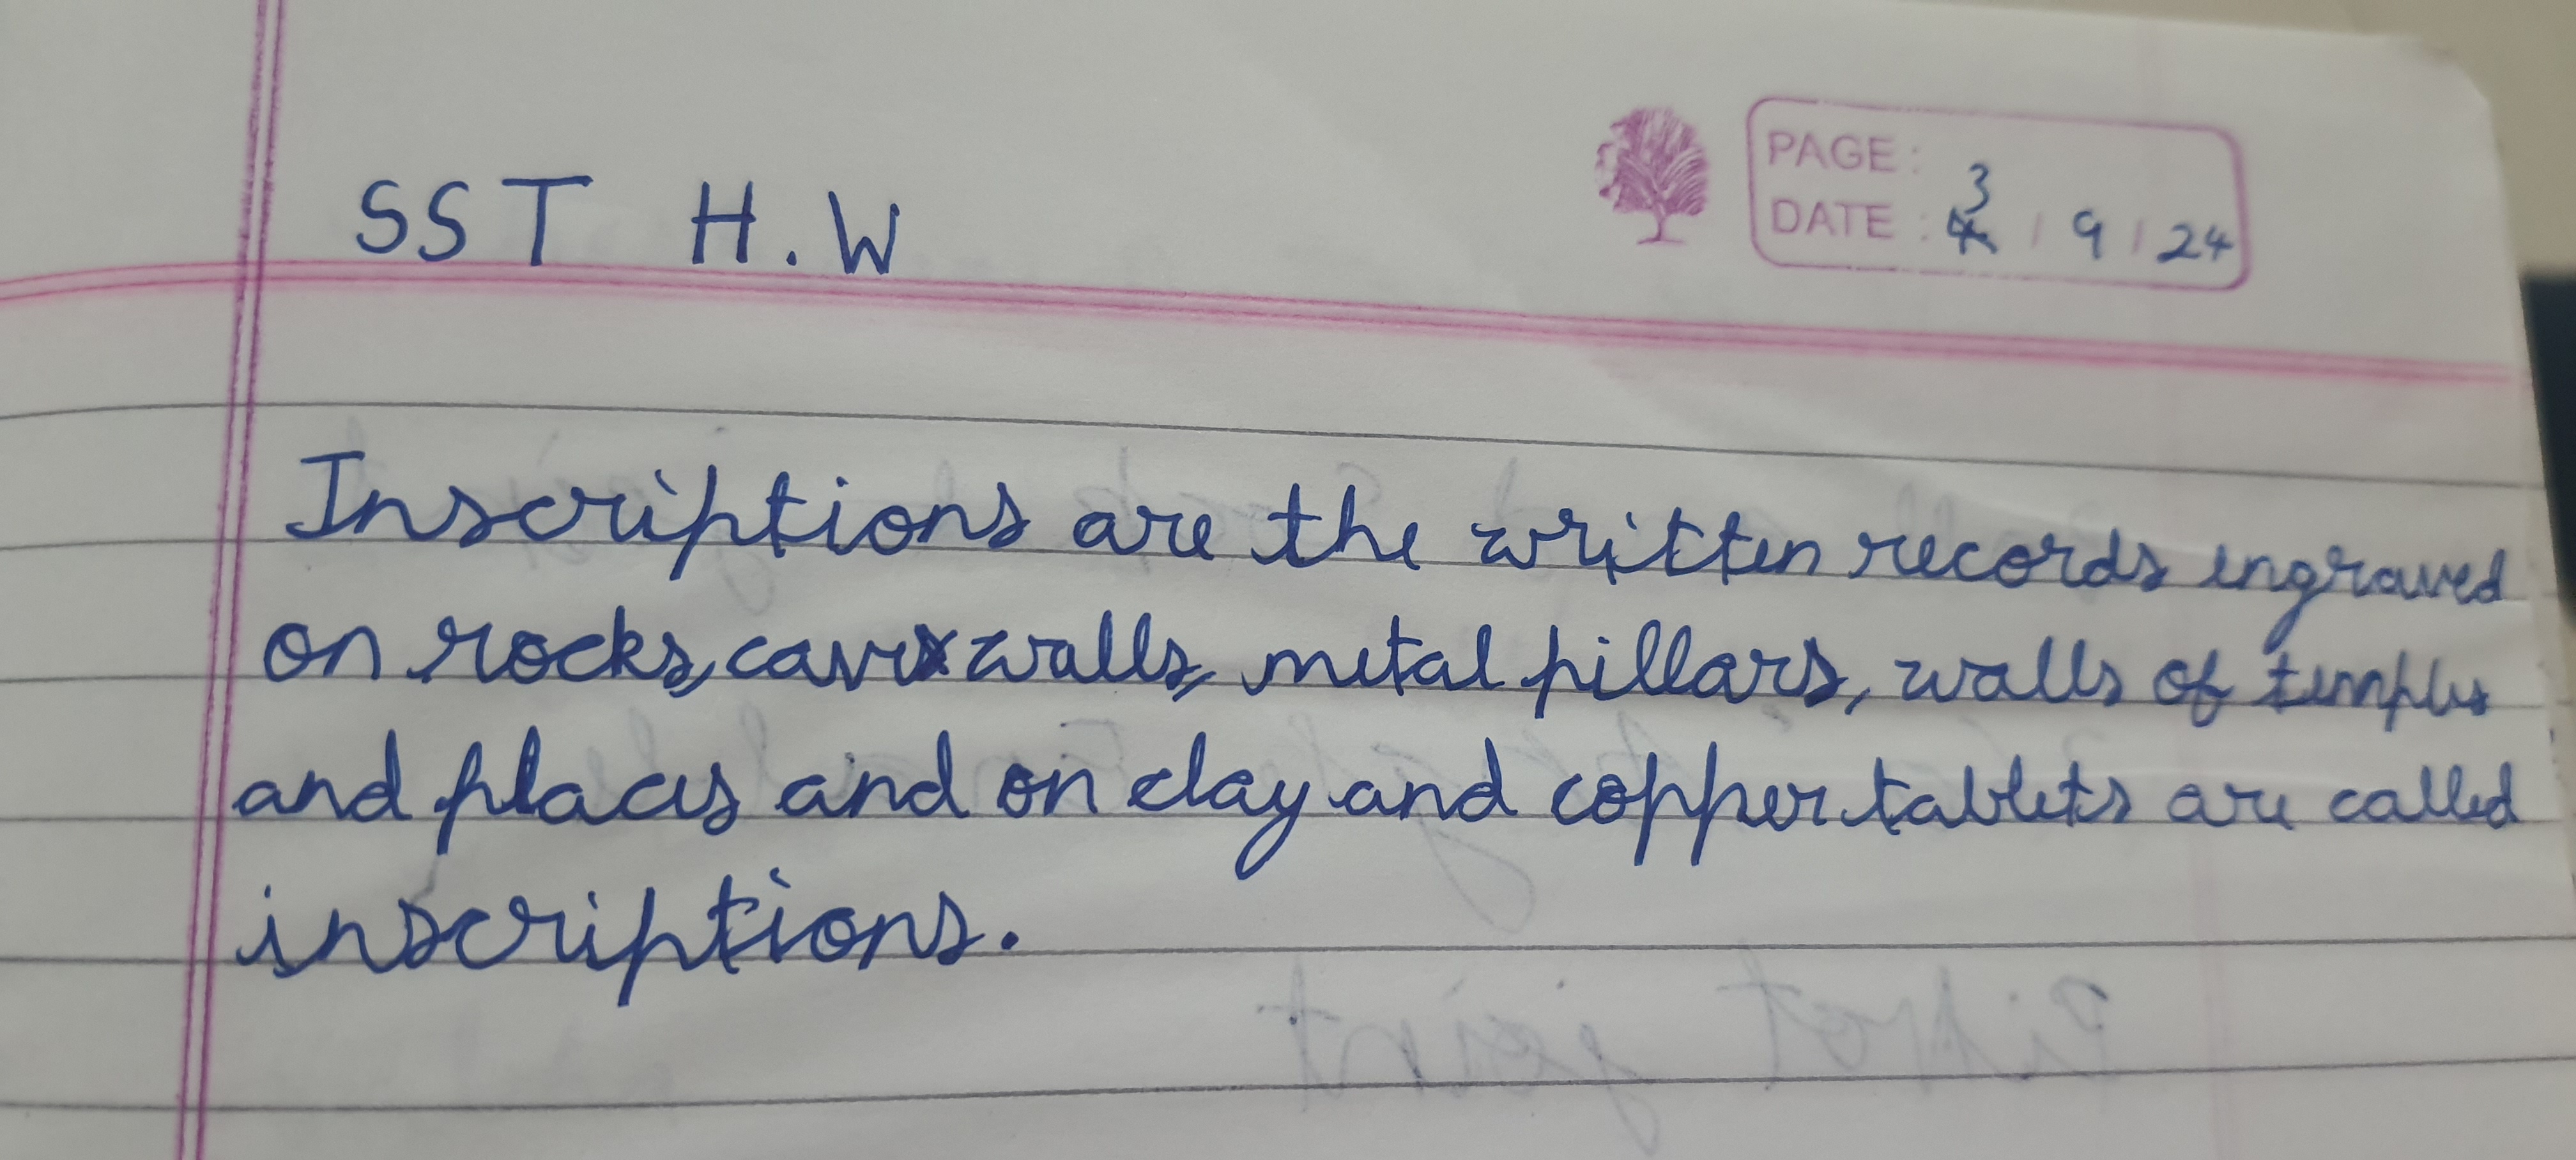 SST H.W
PAGE:
DATE: 3/9/24
Inscriptions are the written records engraved
on rocks, cave walls, metal pillars, walls of temples
and places and on clay and copper tablets are called
inscriptions.
Pivot joint